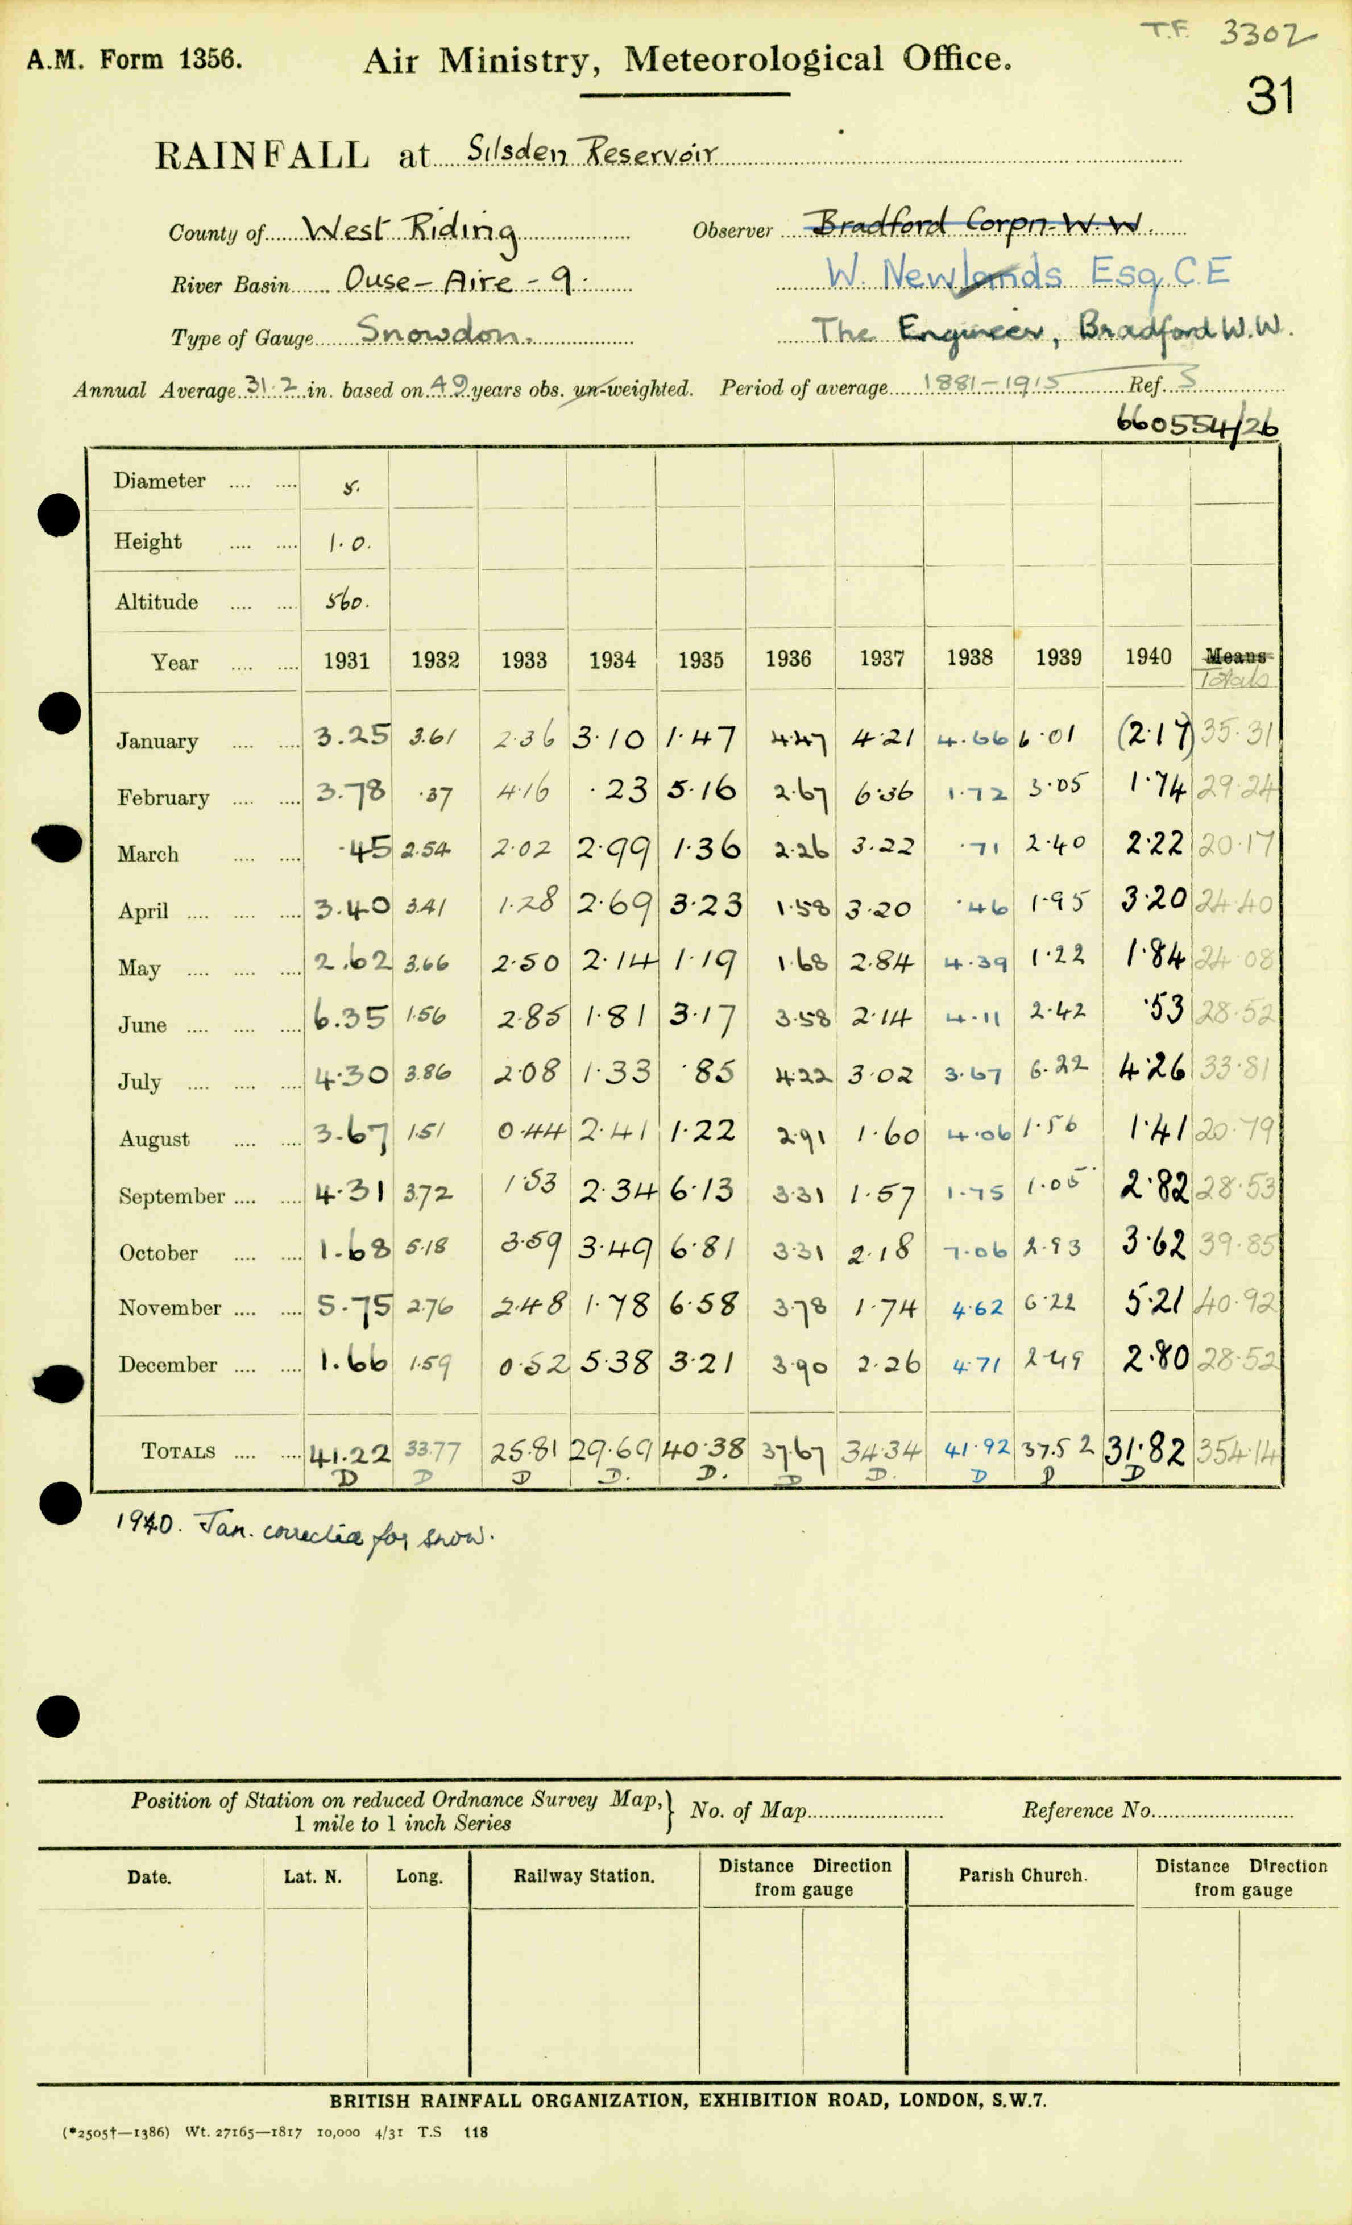 T.F. 3302
A.M. Form 1356. Air Ministry, Meteorological Office.
31
RAINFALL at Silsden Reservoir
County of West Riding Observer Bradford Corpn. W.W.
River Basin Ouse - Aire - 9. W. Newlands Esq. C.E
Type of Gauge Snowdon. The Engineer, Bradford W.W.
Annual Average 31.2 in. based on 49 years obs. un-weighted. Period of average 1881-1915 Ref. S
660554/26
Diameter .... .... 5.
Height .... .... 1.0.
Altitude .... .... 560.
Year .... .... 1931 1932 1933 1934 1935 1936 1937 1938 1939 1940 Means
Totals
January .... .... 3.25 3.61 2.36 3.10 1.47 4.47 4.21 4.66 6.01 (2.17) 35.31
February .... .... 3.78 .37 4.16 .23 5.16 2.67 6.36 1.72 3.05 1.74 29.24
March .... .... .45 2.54 2.02 2.99 1.36 2.26 3.22 .71 2.40 2.22 20.17
April .... .... .... 3.40 3.41 1.28 2.69 3.23 1.58 3.20 .46 1.95 3.20 24.40
May .... .... .... 2.62 3.66 2.50 2.14 1.19 1.68 2.84 4.39 1.22 1.84 24.08
June .... .... .... 6.35 1.56 2.85 1.81 3.17 3.58 2.14 4.11 2.42 .53 28.52
July .... .... .... 4.30 3.86 2.08 1.33 .85 4.22 3.02 3.67 6.22 4.26 33.81
August .... .... 3.67 1.51 0.44 2.41 1.22 2.91 1.60 4.06 1.56 1.41 20.79
September .... .... 4.31 3.72 1.53 2.34 6.13 3.31 1.57 1.75 1.05 2.82 28.53
October .... .... 1.68 5.18 3.59 3.49 6.81 3.31 2.18 7.06 2.93 3.62 39.85
November .... .... 5.75 2.76 2.48 1.78 6.58 3.78 1.74 4.62 6.22 5.21 40.92
December .... .... 1.66 1.59 0.52 5.38 3.21 3.90 2.26 4.71 2.49 2.80 28.52
TOTALS .... .... 41.22 33.77 25.81 29.69 40.38 37.67 34.34 41.92 37.52 31.82 354.14
D D D D. D. D D. D D D
1940. Jan. corrected for snow.
Position of Station on reduced Ordnance Survey Map, } No. of Map Reference No.
1 mile to 1 inch Series
Date. Lat. N. Long. Railway Station. Distance Direction Parish Church. Distance Direction
from gauge from gauge
BRITISH RAINFALL ORGANIZATION, EXHIBITION ROAD, LONDON, S.W.7.
(*2505†—1386) Wt. 27165—1817 10,000 4/31 T.S 118